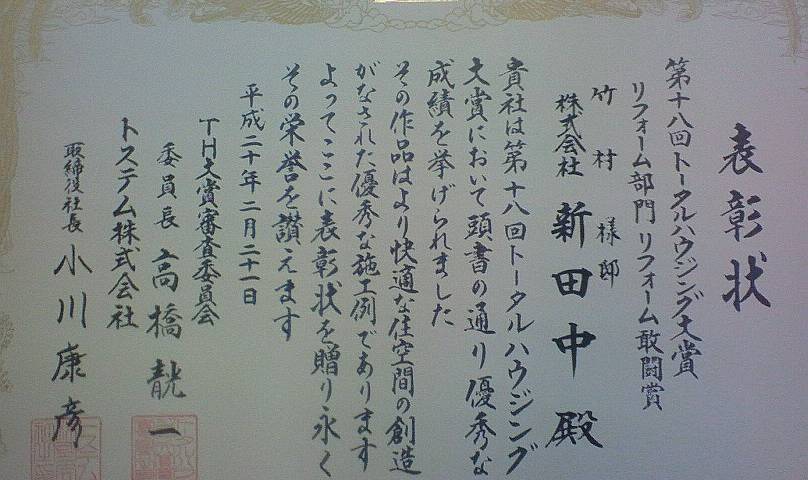 表彰状
第十八回トータルハウジング大賞
リフォーム部門 リフォーム敢闘賞
竹村様邸
株式会社 新田中殿
貴社は第十八回トータルハウジング
大賞において頭書の通り優秀な
成績を挙げられました
その作品はより快適な住空間の創造
がなされた優秀な施工例であります
よってここに表彰状を贈り永く
その栄誉を讃えます
平成二十年二月二十一日
TH大賞審査委員会
委員長 高橋靗一
トステム株式会社
取締役社長 小川康彦